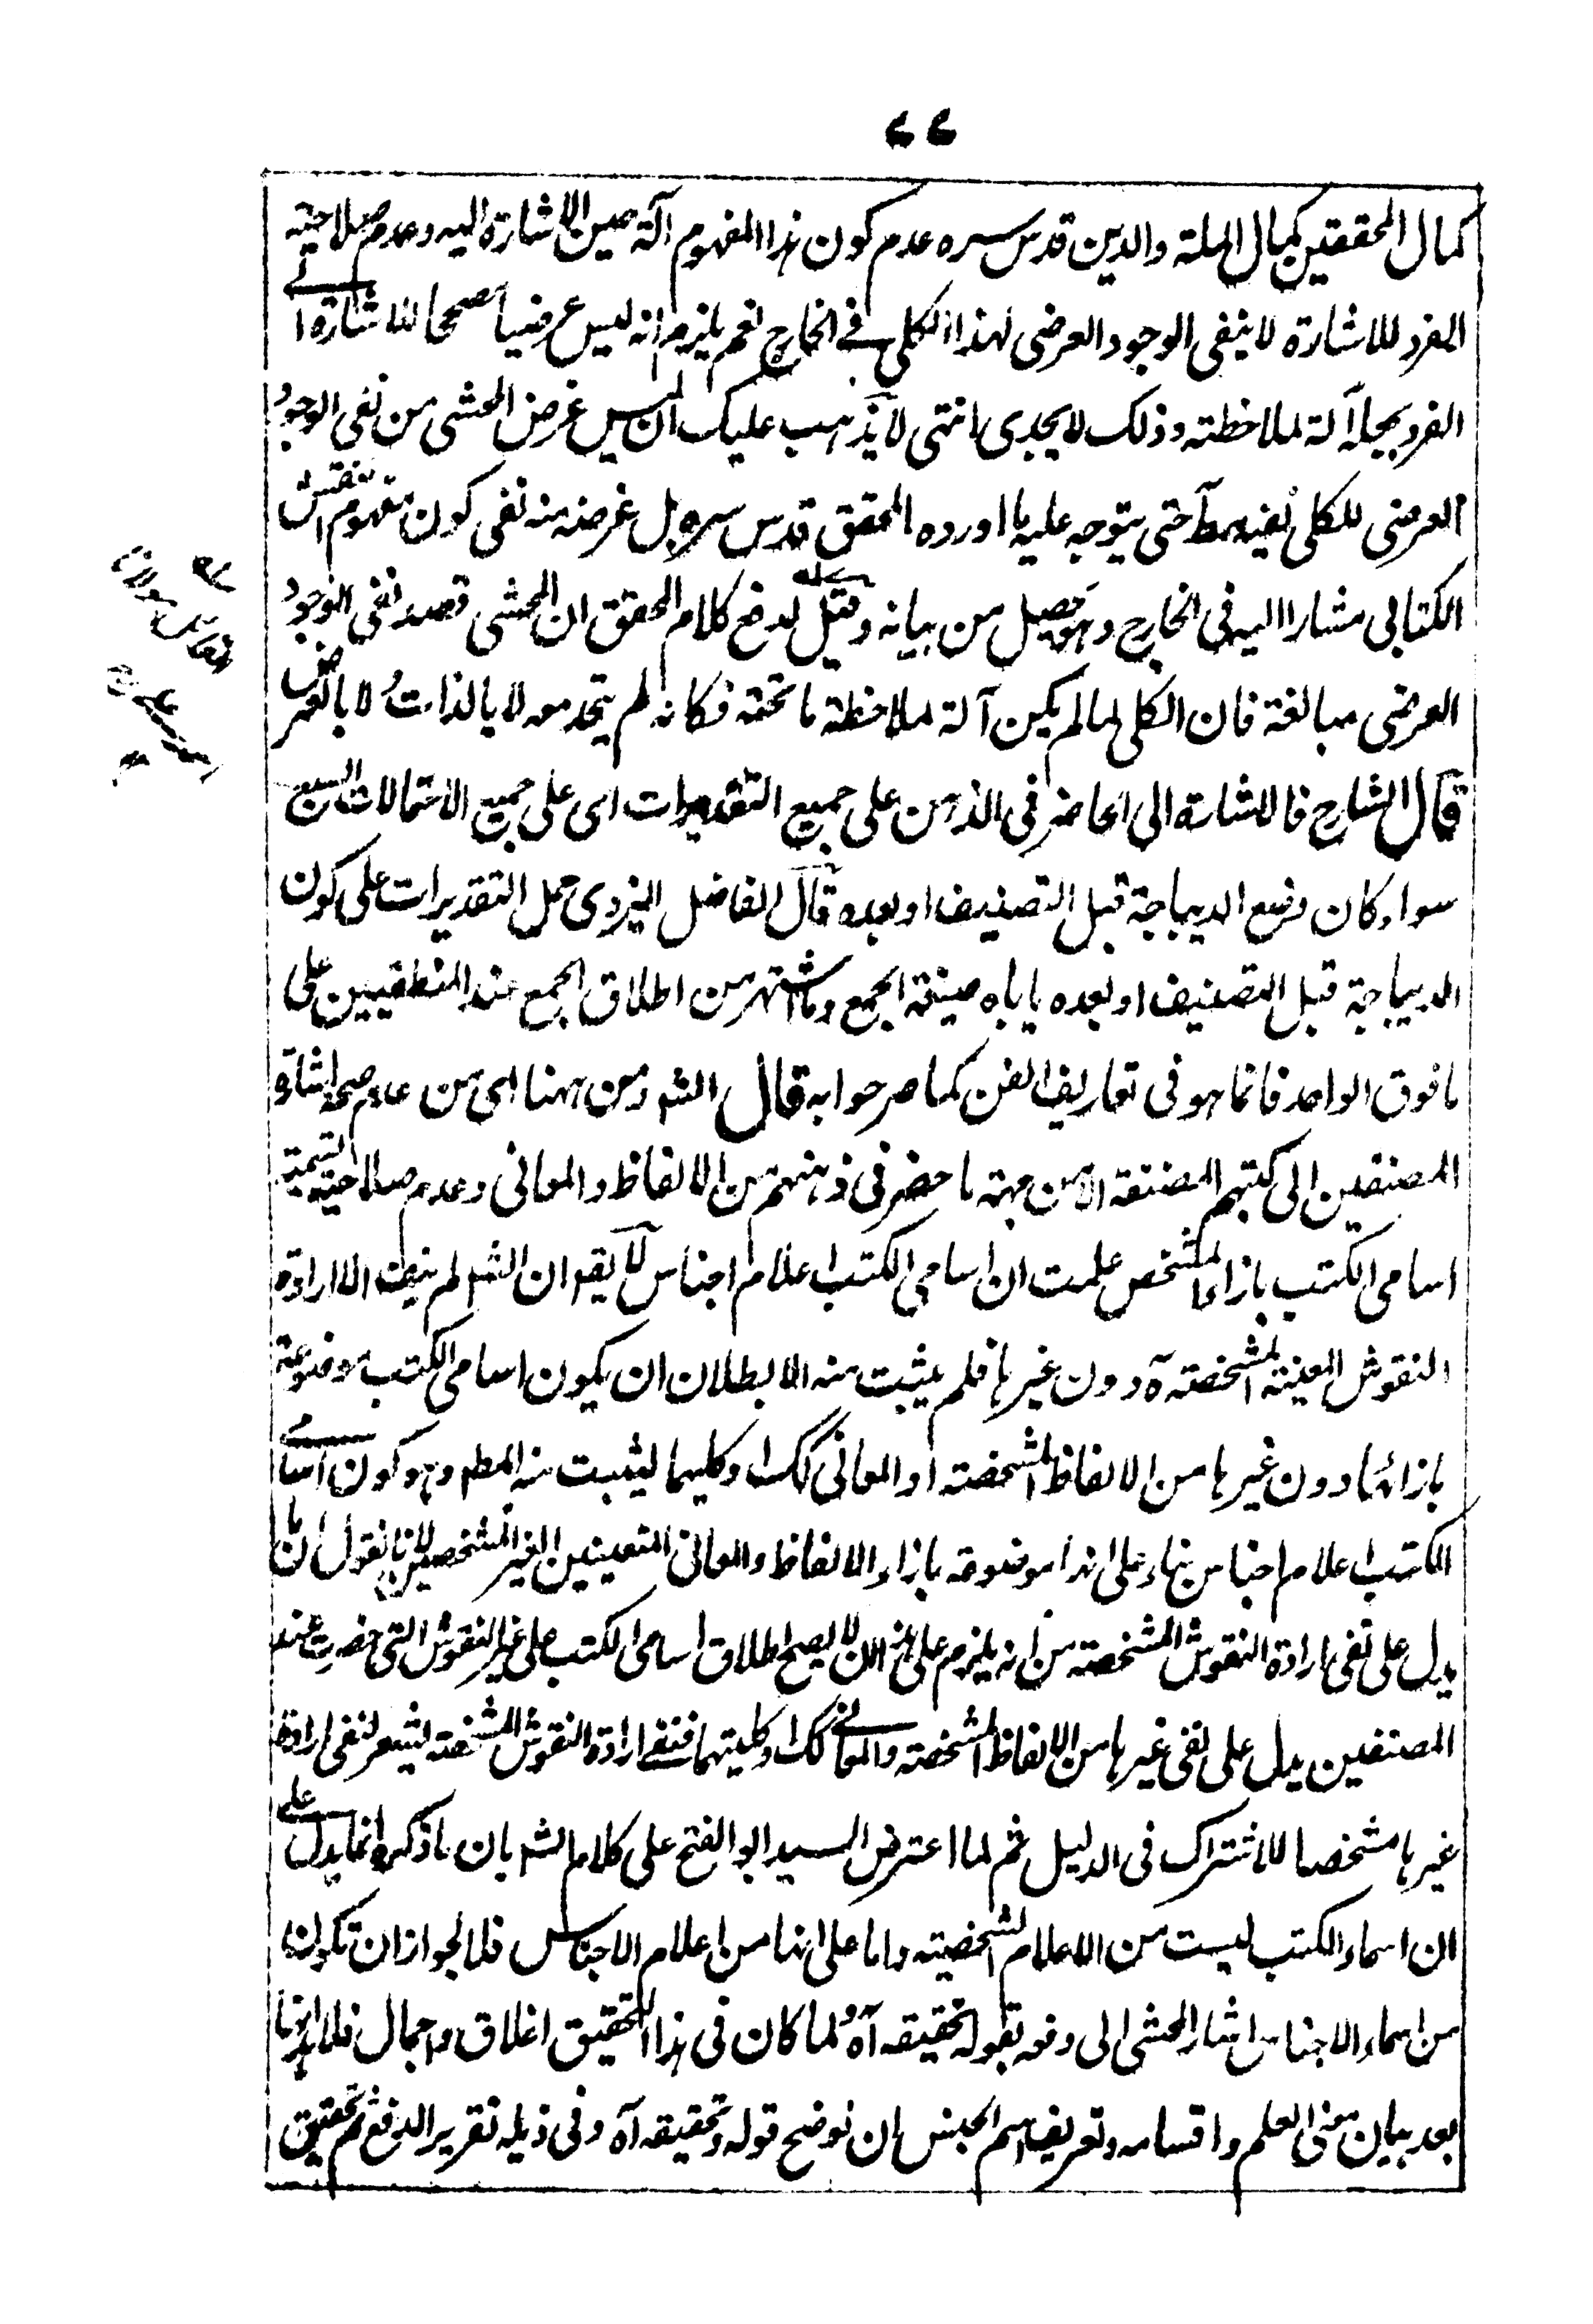 ٧٧
كمال المحققين كمال الملة والدين قدس سره عدم كون هذا المفهوم آلة حين الاشارة اليه وعدم صلاحية
المفرد للاشارة لا ينفى الوجود العرضى لهذا الكلى فى الخارج نعم يلزم انه ليس عرضيا مصححا للاشارة الى
الفرد بجعله آلة لملاحظته وذلك لا يجدى انتهى لا يذهب عليك ان ليس غرض المحشى من نفى الوجود
العرضى للكلى نفيه مط حتى يتوجه عليه ما اورده المحقق قدس سره بل غرضه منه نفى كون مفهوم النقش
الكتابى مشارا اليه فى الخارج وهو حصيل من بيانه وقيل لدفع كلام المحقق ان المحشى قصد نفى الوجود
العرضى مبالغة فان الكلى لما لم يكن آلة لملاحظة ما تحته فكانه لم يتحد معه لا بالذات ولا بالعرض
قال الشارح فالاشارة الى الحاضر فى الذهن على جميع التقديرات اى على جميع الاحتمالات السبع
سواء كان وضع الديباجة قبل التصنيف او بعده قال الفاضل اليزدى حمل التقديرات على كون
الديباجة قبل التصنيف او بعده ياباه صيغة الجمع وما اشتهر من اطلاق الجمع عند المنطقيين على
ما فوق الواحد فانما هو فى تعاريف الفن كما صرحوا به قال الشه ومن ههنا اى من عدم صحة اشارة
المصنفين الى كتبهم المصنفة الا من جهة ما حضر فى ذهنهم من الالفاظ والمعانى وعدم صلاحية التسمية
اسامى الكتب بازاء المشخص علمت ان اسامى الكتب اعلام اجناس لا يقه ان الشه لم ينف الا ارادة
النقوش المعينة المشخصة آه دون غيرها فلم يثبت منه الا بطلان ان يكون اسامى الكتب موضوعة
بازائها دون غيرها من الالفاظ المشخصة او المعانى كك او كليهما ليثبت منه المطه وهو كون اسامى
الكتب اعلام اجناس بناء على انها موضوعة بازاء الالفاظ والمعانى المتعينين الغير المشخصين لانا نقول ان ما
يدل على نفى ارادة النقوش المشخصة من انه يلزم على هذا ان لا يصح اطلاق اسامى الكتب على غير النقوش التى حضرت عند
المصنفين يدل على نفى غيرها من الالفاظ المشخصة والمعانى كك او كليتهما فنفى ارادة النقوش المشخصة ليشعر لنفى ارادة
غيرها مشخصا للاشتراك فى الدليل ثم لما اعترض السيد ابو الفتح على كلام الشه بان ما ذكره انما يدل على
ان اسماء الكتب ليست من الاعلام الشخصية واما على انها من اعلام الاجناس فلا لجواز ان تكون
من اسماء الاجناس اشار المحشى الى دفعه بقوله تحقيقه آه ولما كان فى هذا التحقيق اغلاق واجمال فلابد لنا
بعد بيان معنى العلم واقسامه وتعريف اسم الجنس ان نوضح قوله وتحقيقه آه وفى ذيله تقرير الدفع ثم تحقيق